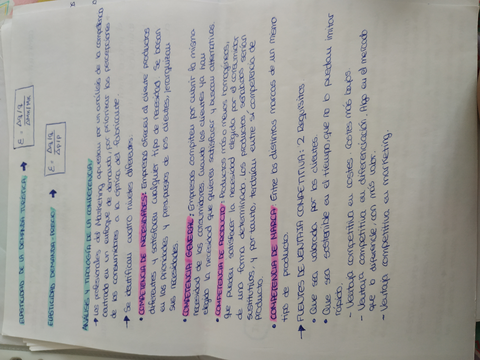 ELASTICIDAD DE LA DEMANDA TURÍSTICA: →
ELASTICIDAD DEMANDA - PRECIO →
ANÁLISIS Y TIPOLOGÍA DE LA COMPETENCIA:
→ Los profesionales del Marketing apuestan por un análisis de la competencia
basado en un enfoque de demanda, por priorizar las percepciones
de los consumidores a la óptica del fabricante.
→ Se identifican cuatro niveles diferentes.
• COMPETENCIA DE NECESIDADES: Empresas ofrecen al cliente productos
diferentes y satisfacen cualquier tipo de necesidad. Se basan
en las prioridades y
de los clientes jerarquizan
sus necesidades.
• COMPETENCIA GENERAL: Empresas compiten por cubrir la misma
necesidad de los consumidores. Cuando los clientes ya han
elegido la necesidad que quieren satisfacer y buscan alternativas.
• COMPETENCIA DE PRODUCTO: Productos más o menos homogéneos,
que puedan satisfacer la necesidad elegida por el consumidor
de una forma determinada. Los productos señalados serían
sustitutivos, y por tanto, también existe su competencia de
producto.
• COMPETENCIA DE MARCA: Entre las distintas marcas de un mismo
tipo de producto.
→ FUENTES DE VENTAJA COMPETITIVA: 2 Requisitos
• Que sea valorada por los clientes.
• Que sea sostenible en el tiempo, que no lo puedan imitar
rápido.
- Ventaja competitiva en costes. Costes más bajos
- Ventaja competitiva en diferenciación. Algo en el mercado
que lo diferencie con más valor.
- Ventaja competitiva en marketing.